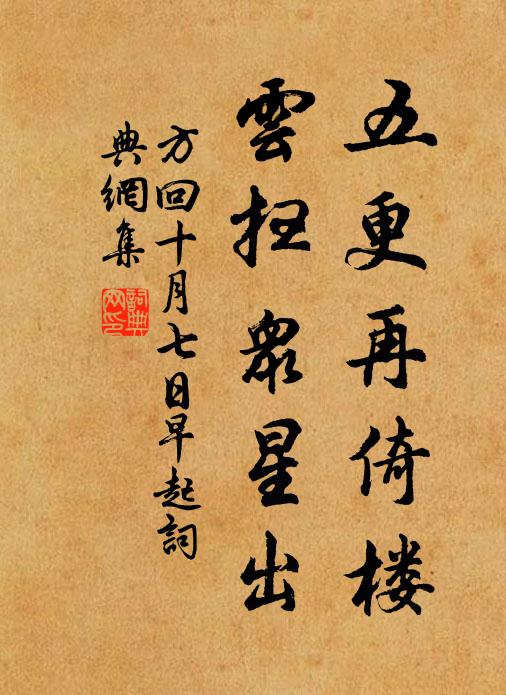 五更再倚楼
雲扫衆星出
方回十月七日早起詞
典網集
詞典
网印